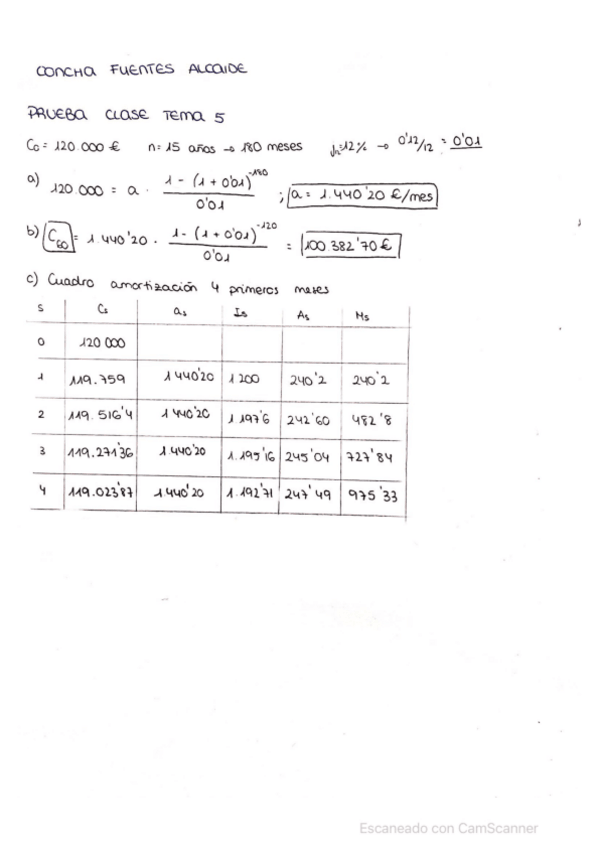 CONCHA FUENTES ALCAIDE
PRUEBA CLASE TEMA 5
C₀ = 120 000 € n = 15 años → 180 meses J₁₂=12% → 0'12/12 = 0'01
a) 120 000 = a · 1 - (1 + 0'01)⁻¹⁸⁰ / 0'01 ; a = 1.440'20 €/mes
b) C₆₀ = 1.440'20 · 1 - (1 + 0'01)⁻¹²⁰ / 0'01 = 100.382'70 €
c) Cuadro amortización 4 primeros meses
S Cs as Is As Ms
0 120 000
1 119.759 1440'20 1200 240'2 240'2
2 119.516'4 1440'20 1.197'6 242'60 482'8
3 119.271'36 1.440'20 1.195'16 245'04 727'84
4 119.023'87 1.440'20 1.192'71 247'49 975'33
Escaneado con CamScanner